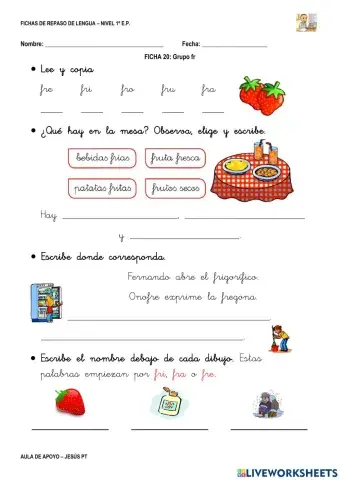 FICHAS DE REPASO DE LENGUA – NIVEL 1º E.P.
Nombre: ______________________ Fecha: ______________
FICHA 20: Grupo fr
• Lee y copia
fre fri fro fru fra
• ¿Qué hay en la mesa? Observa, elige y escribe.
bebidas frías fruta fresca
patatas fritas frutos secos
Hay ______________________, ______________________
y ______________________.
• Escribe donde corresponda.
Fernando abre el frigorífico.
Onofre exprime la fregona.
• Escribe el nombre debajo de cada dibujo. Estas
palabras empiezan por fri, fra o fre.
AULA DE APOYO – JESÚS PT
LIVEWORKSHEETS